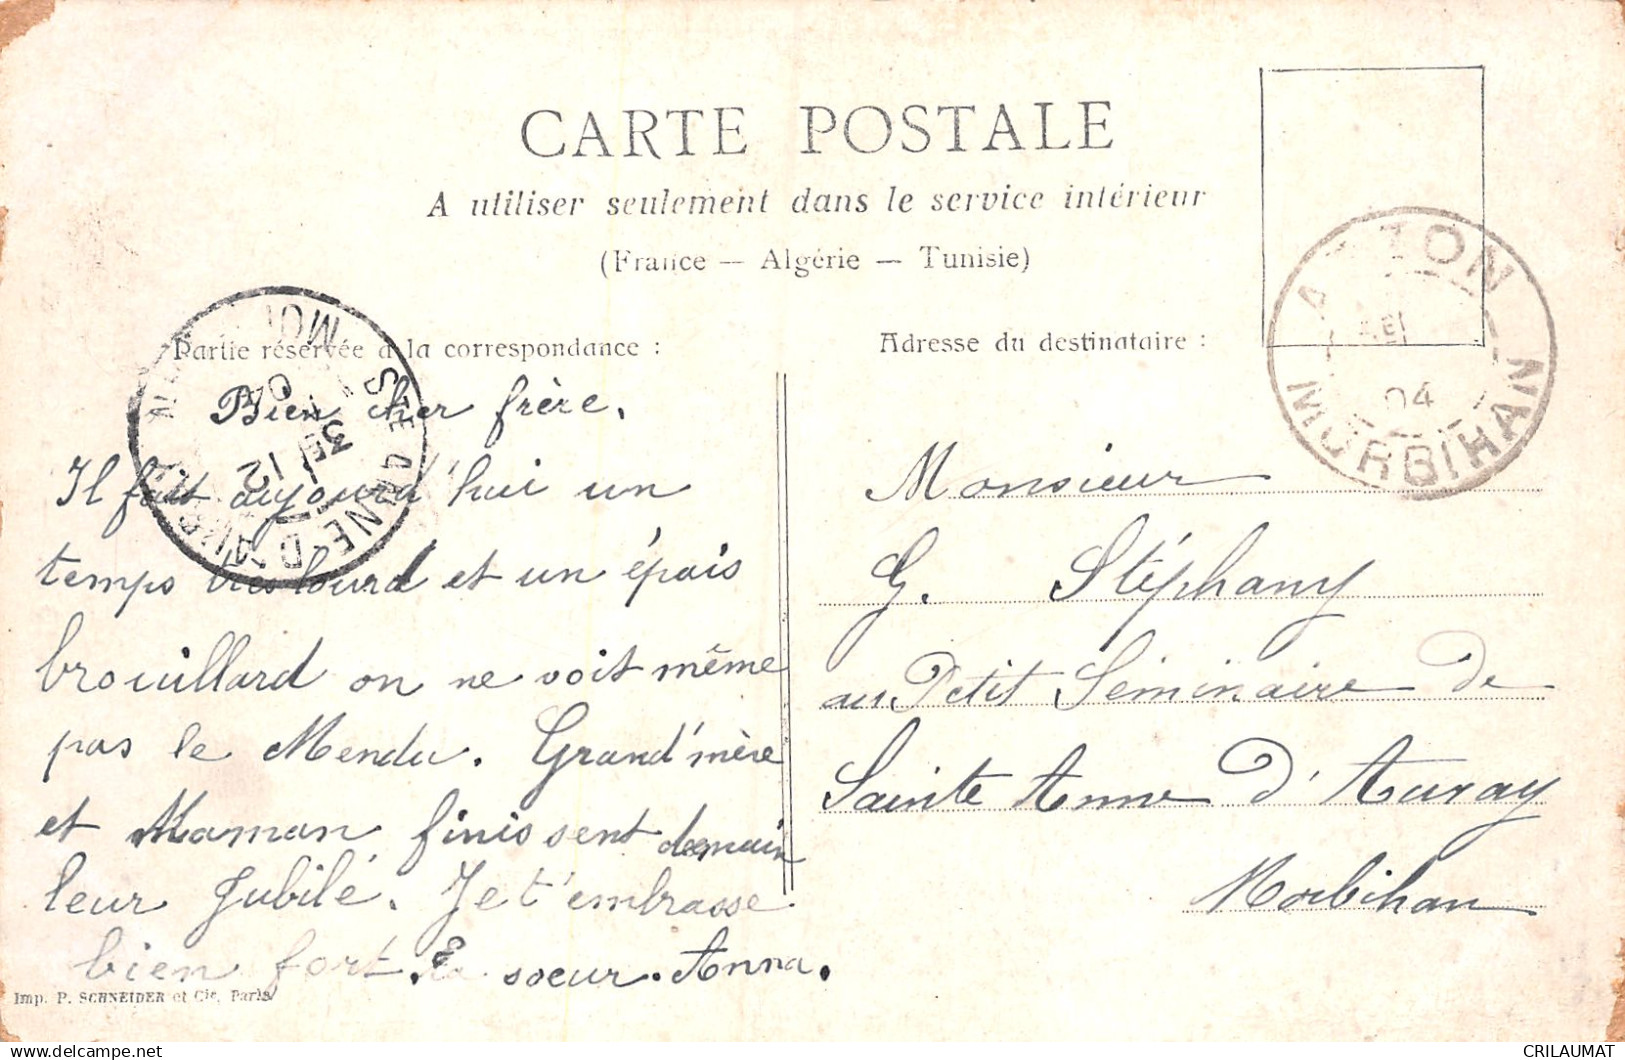 CARTE POSTALE
A utiliser seulement dans le service intérieur
(France — Algérie — Tunisie)
Partie réservée à la correspondance :
Bien cher frère.
Il fait aujourd'hui un
temps très lourd et un épais
brouillard on ne voit même
pas le Mendu. Grand'mère
et Maman finissent demain
leur Jubilé. Je t'embrasse
bien fort. Ta soeur. Anna.
Imp. P. SCHNEIDER et Cie, Paris
Adresse du destinataire :
Monsieur
G. Stéphany
au Petit Séminaire de
Sainte Anne d'Auray
Morbihan
MORBIHAN
04
STE ANNE-D'AURAY
12
04
CRILAUMAT